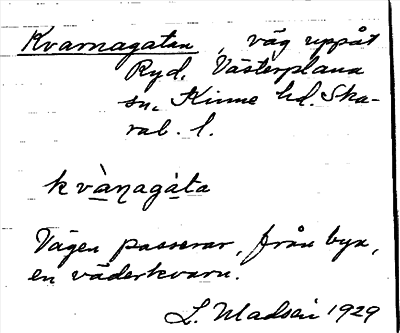 Kvarnagatan, väg uppåt
Ryd, Västerplana
sn, Kinne hd. Ska-
rab. l.
kvàṇagáta
Vägen passerar, från byn,
en väderkvarn.
L. Madsén 1929